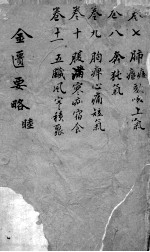 卷七 肺痿 肺癰 咳嗽上氣
卷八 奔㹠氣
卷九 胸痺心痛短氣
卷十 腹滿寒疝宿食
卷十一 五臟風寒積聚
金匱要略